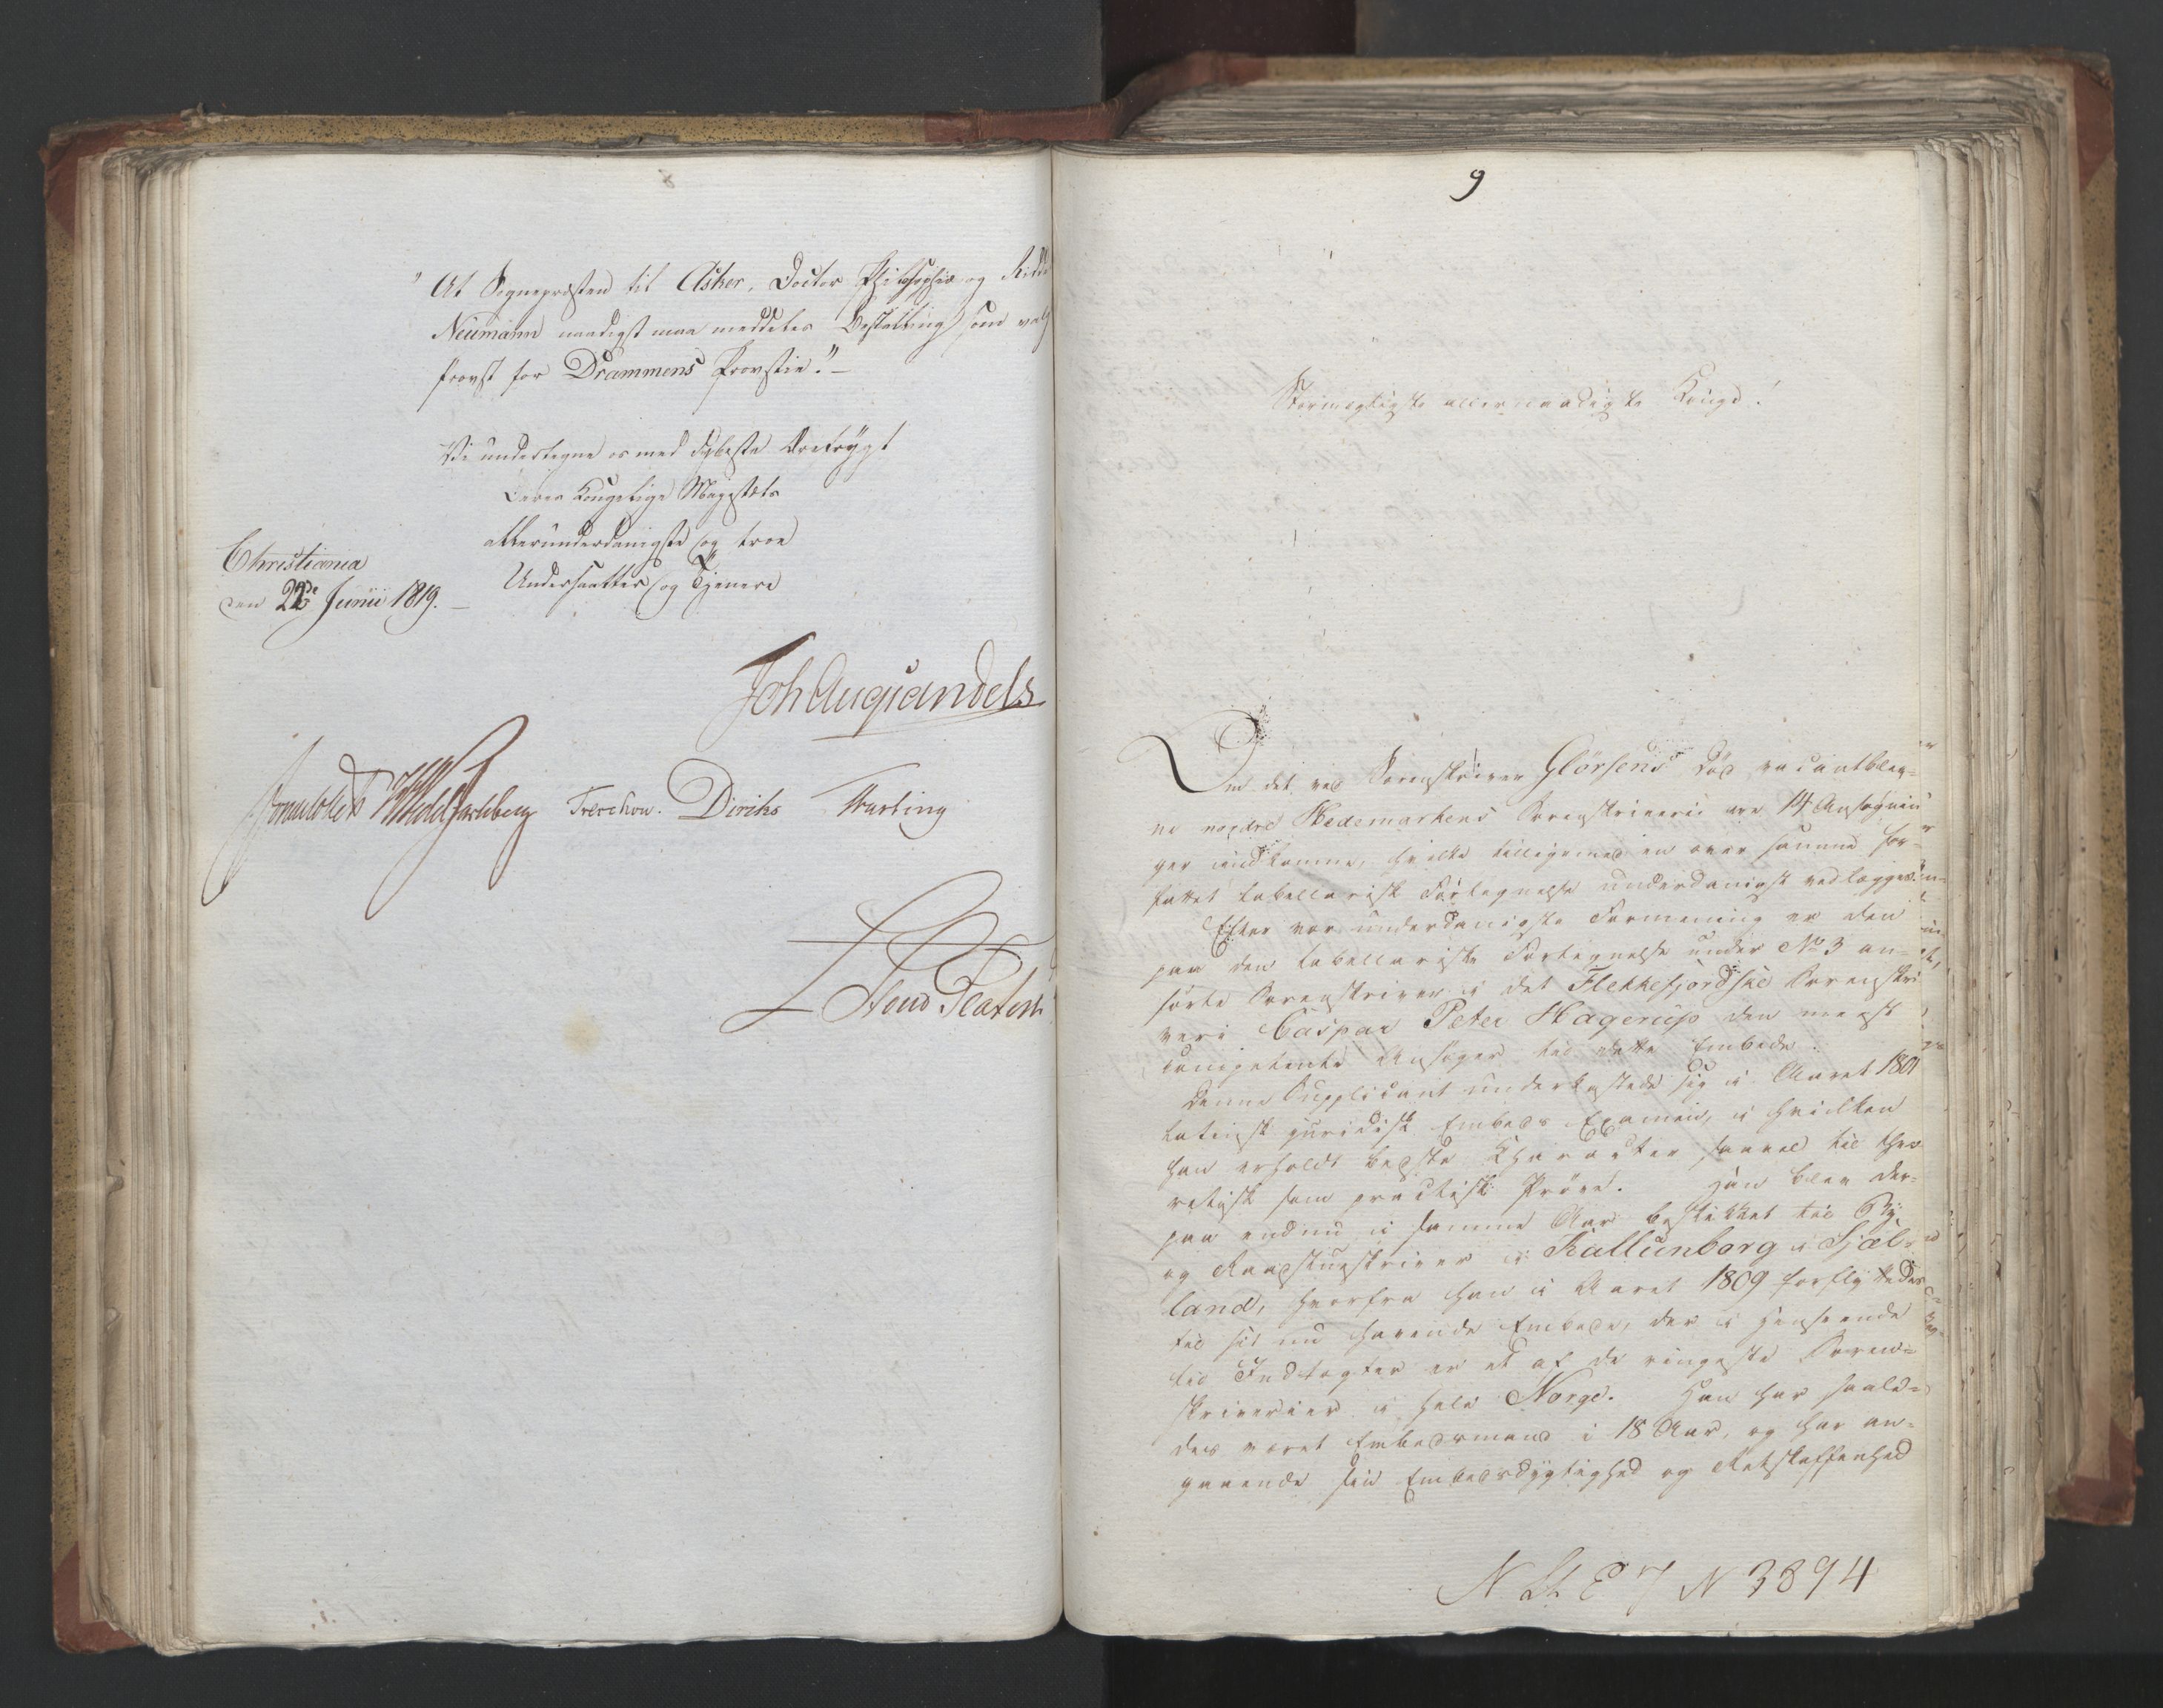 "At Sognepræsten til Asker, Doctor Philosophiæ og Ridder
Neumann naadigst maa meddeles Bestalling som valgt
Provst for Drammens Provstie."
Vi undertegne os med dybeste Ærefrygt
Deres Kongelige Majestæts
allerunderdanigste og troe
Undersaatter og Tjenere
Christiania
den 22de Junii 1819.
Joh Aug Sandels
Sommerhielm Wedel Jarlsberg Treschow. Diriks Fasting
9
Stormægtigste allernaadigste Konge!
Om det ved Sorenskriver Glörsens Död vacantblev-
ne nordre Hedemarkens Sorenskriverie ere 14 Ansøgnin
ger indkomne, hvilke tilligemed en over samme for-
fattet tabellarisk Fortegnelse underdanigst vedlægges.
Efter vor underdanigste Formening er den
paa den tabellariske Fortegnelse under No 3 an-
førte Sorenskriver i det Flekkefjordske Sorenskri
veri Caspar Peter Hagerup den meest
competente Ansöger til dette Embede.
Denne Supplicant underkastede sig i Aaret 1801
latinsk juridisk Embeds Examen, i hvilken
han erholdt bedste Character saavel til theo
retisk som practisk Pröve. Han blev der-
paa endnu i samme Aar beskikket til By
og Raadstueskriver i Kallundborg i Sjæl-
land, hvorfra han i Aaret 1809 forflyttedes
til sit nu havende Embede, der i Henseende
til Indtægter er et af de ringeste Soren-
skriverier i hele Norge. Han har saale-
des været Embedsmand i 18 Aar, og har an-
gaaende sin Embedsdygtighed og Retskaffenhed
N 3894